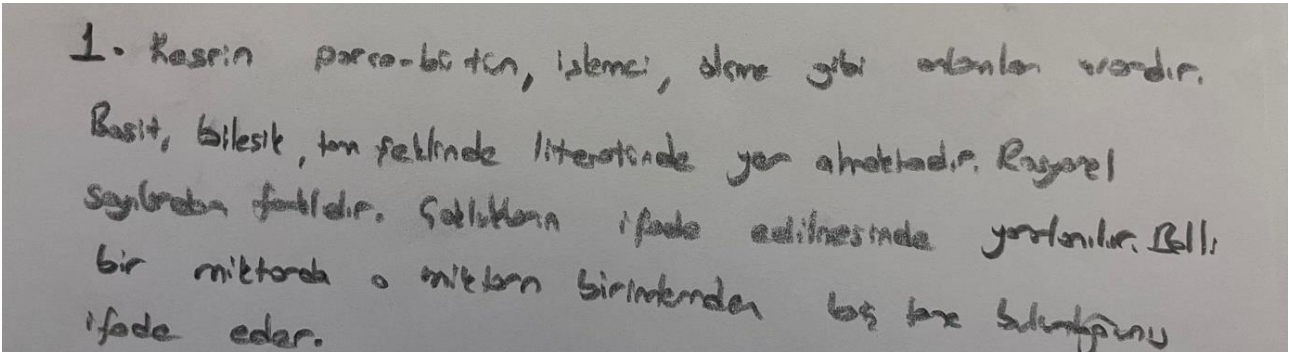 1. Kesrin parça-bütün, işlemci, ölçme gibi anlamları vardır.
Basit, bileşik, tam şeklinde literatürde yer almaktadır. Rasyonel
sayılardan farklıdır. Çoklukların ifade edilmesinde yararlanılır. Belli
bir miktarda o miktarın birimlerinden kaç tane bulunduğunu
ifade eder.